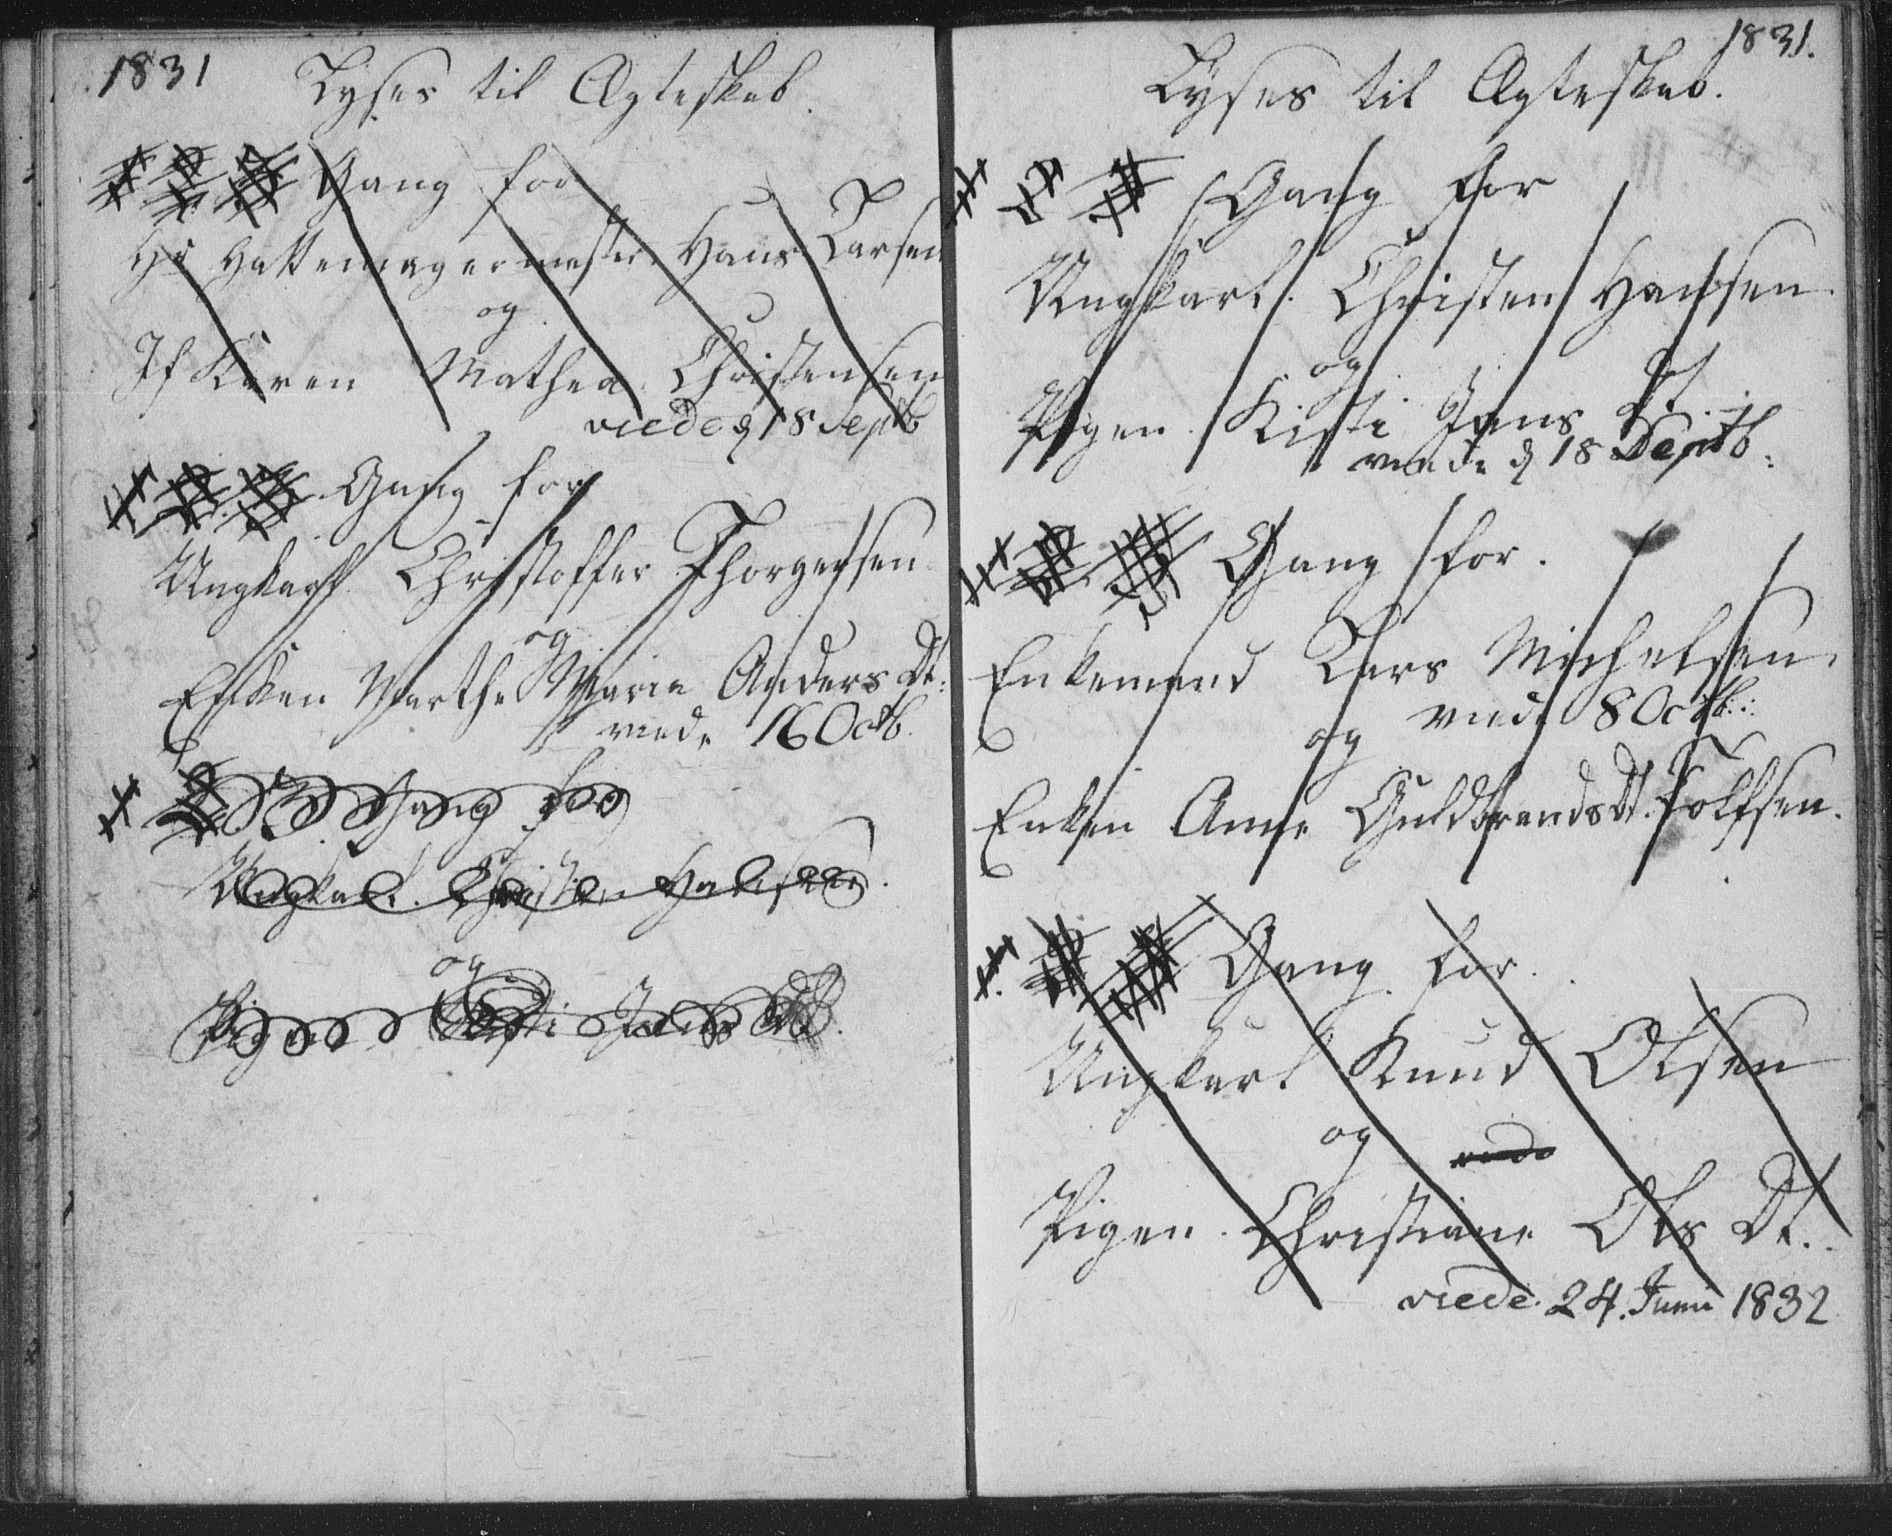 1831 Lyses til Ægteskab.
Gang for
Hr Hattemagermester Hans Larsen
og
Jf Karen Mathea Christensen
viede d 18 Septb
Gang for
Ungkarl Christoffer Thorgersen
og
Enken Marthe Maria Anders Dt:
viede 16 Octb.
Gang for
Ungkarl. Christen Hansen.
og
Pigen Kisti Jens Dt.
1831.
Lyses til Ægteskab.
Gang for
Ungkarl. Christen Hansen.
og
Pigen. Kisti Jens Dt.
viede d 18 Septb:
Gang for.
Enkemand Lars Michelsen.
og viede 8 Octb:
Enken Anne Guldbrands Dt. Tolfsen.
Gang for.
Ungkarl Knud Olsen
og viede
Pigen. Christiane Ols Dt.
viede. 24. Juni 1832